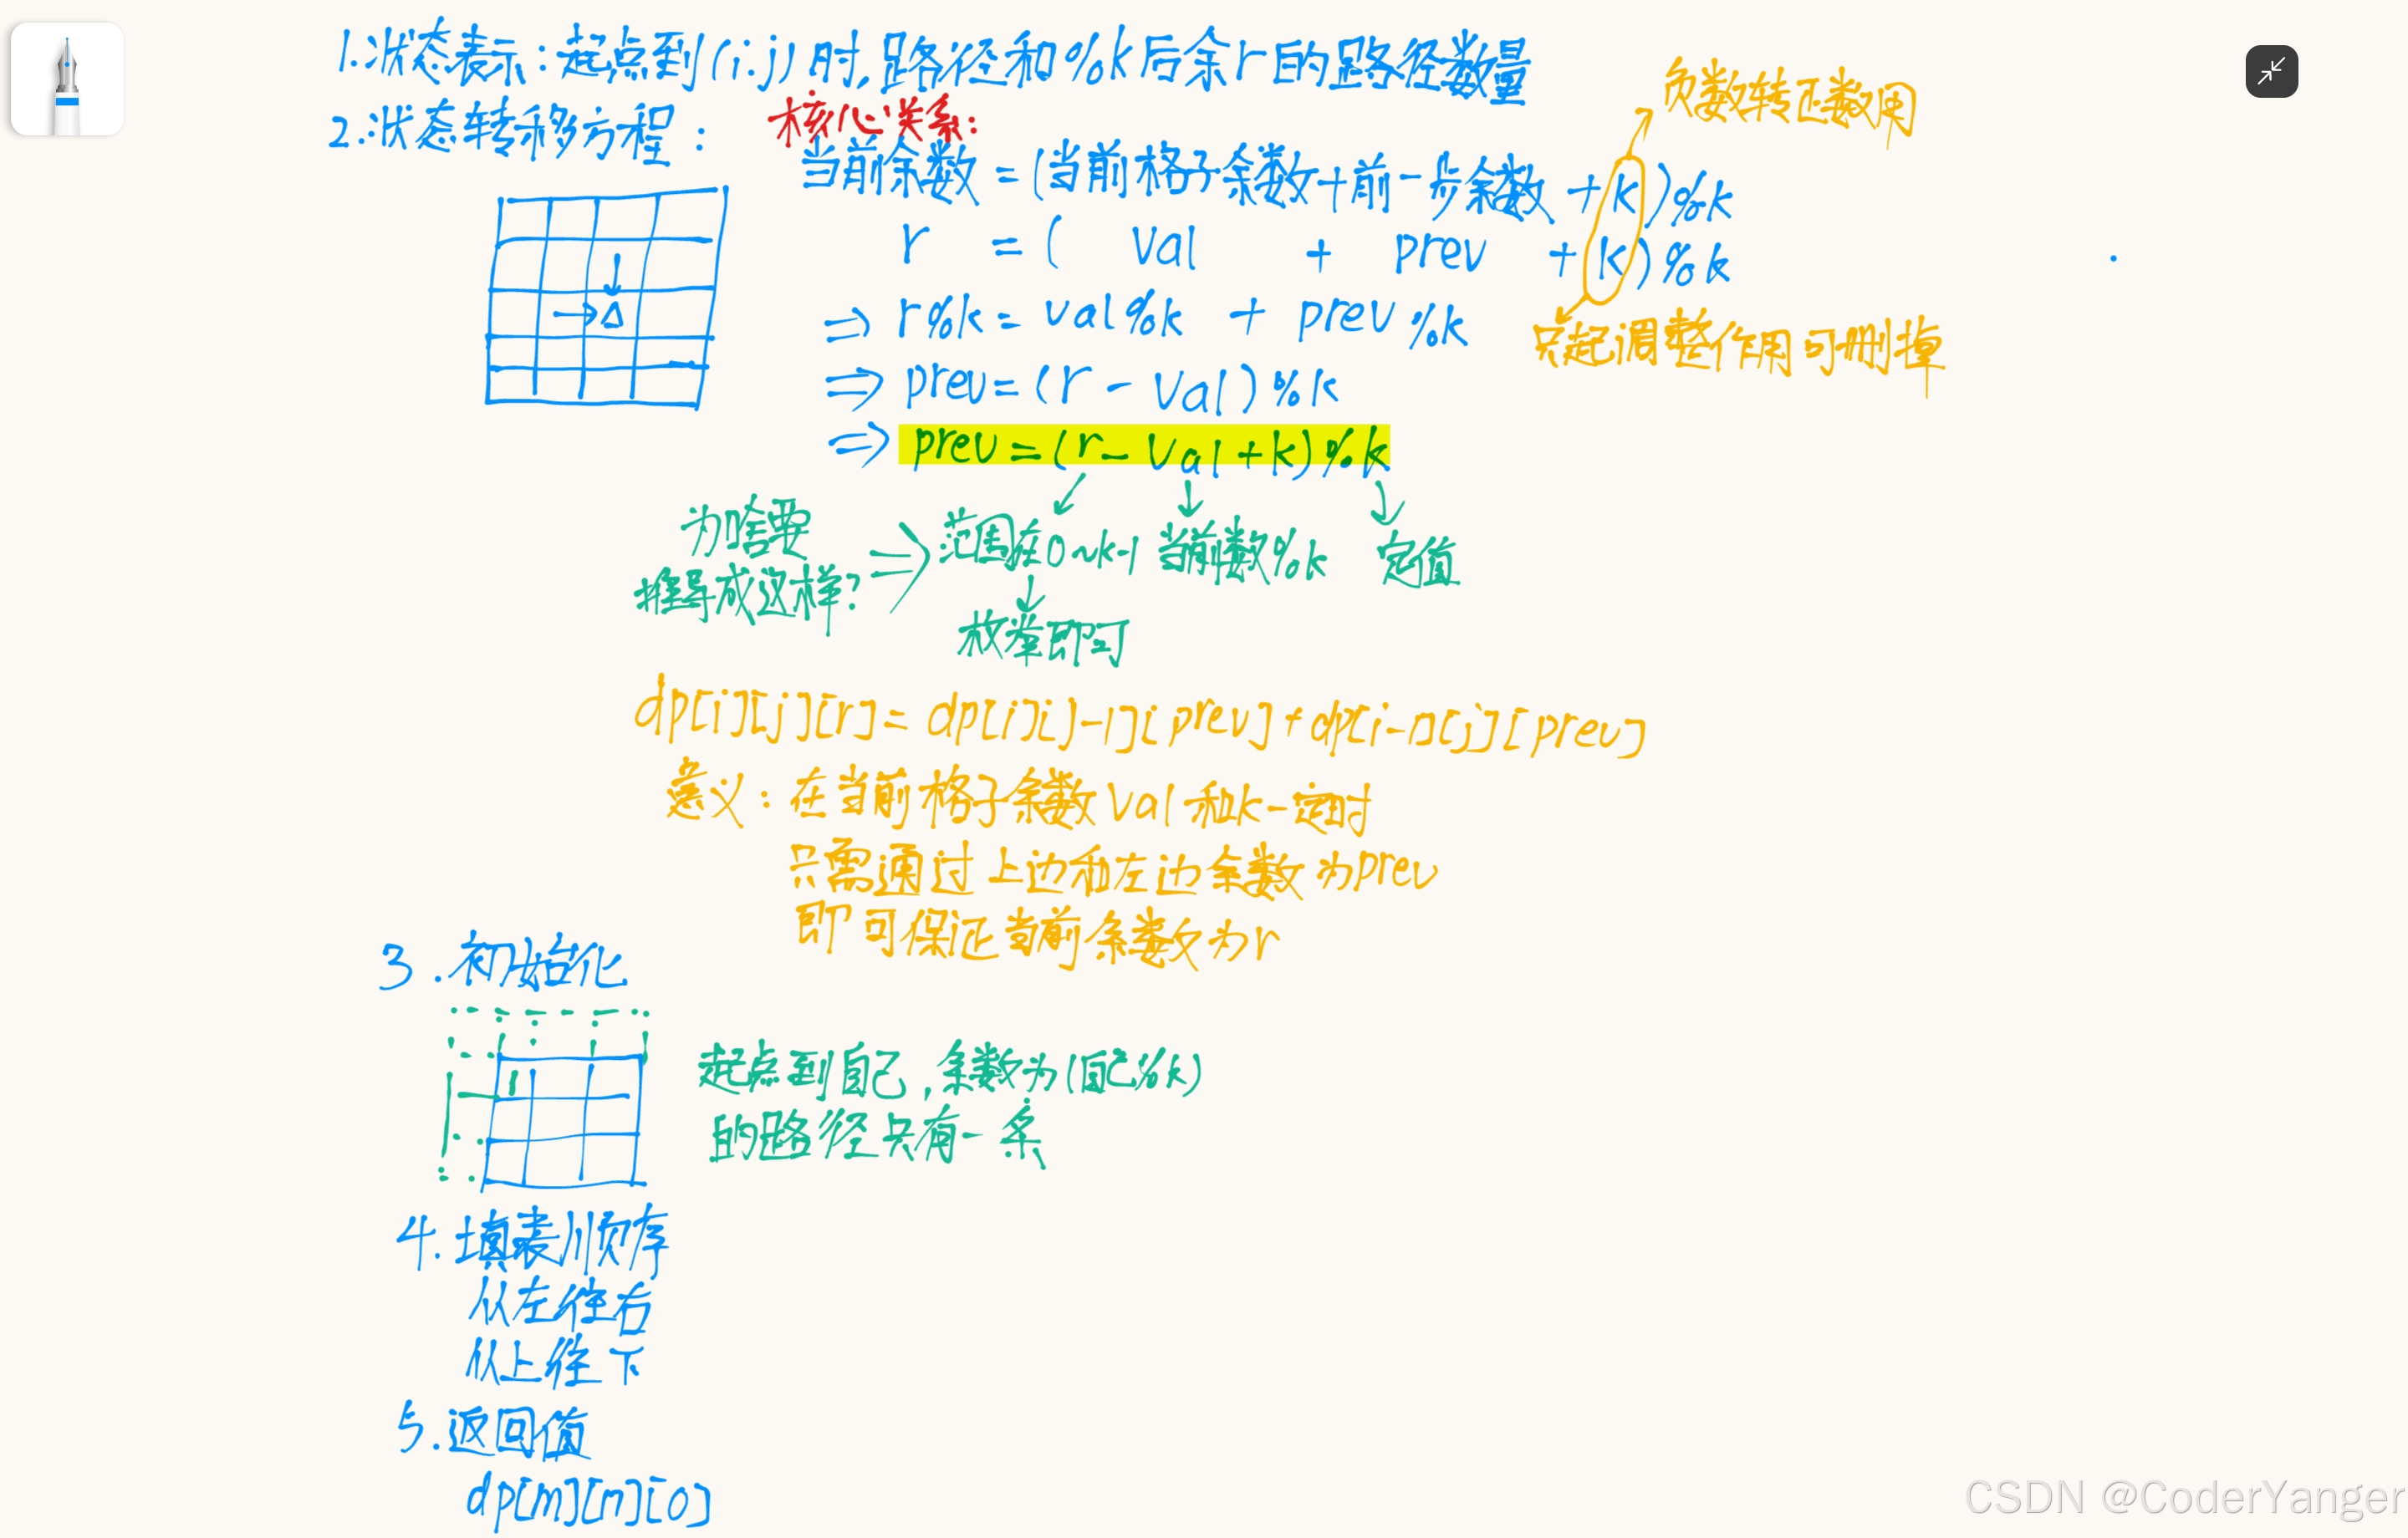 1.状态表示:起点到(i.j)时,路径和%k后余r的路径数量
负数转正数用
2.状态转移方程:
核心关系:
当前余数=(当前格子余数+前一步余数+k)%k
r = ( val + prev + k)%k
⇒ r%k = val%k + prev%k
只起调整作用可删掉
⇒ prev=(r-val)%k
⇒ prev=(r-val+k)%k
为啥要
推导成这样?
⇒ 范围在0~k-1 当前数%k 定值
枚举即可
dp[i][j][r]=dp[i][j-1][prev]+dp[i-1][j][prev]
意义:在当前格子余数val和k一定时
只需通过上边和左边余数为prev
即可保证当前余数为r
3.初始化
起点到自己,余数为(自己%k)
的路径只有一条
4.填表顺序
从左往右
从上往下
5.返回值
dp[m][n][0]
CSDN @CoderYanger